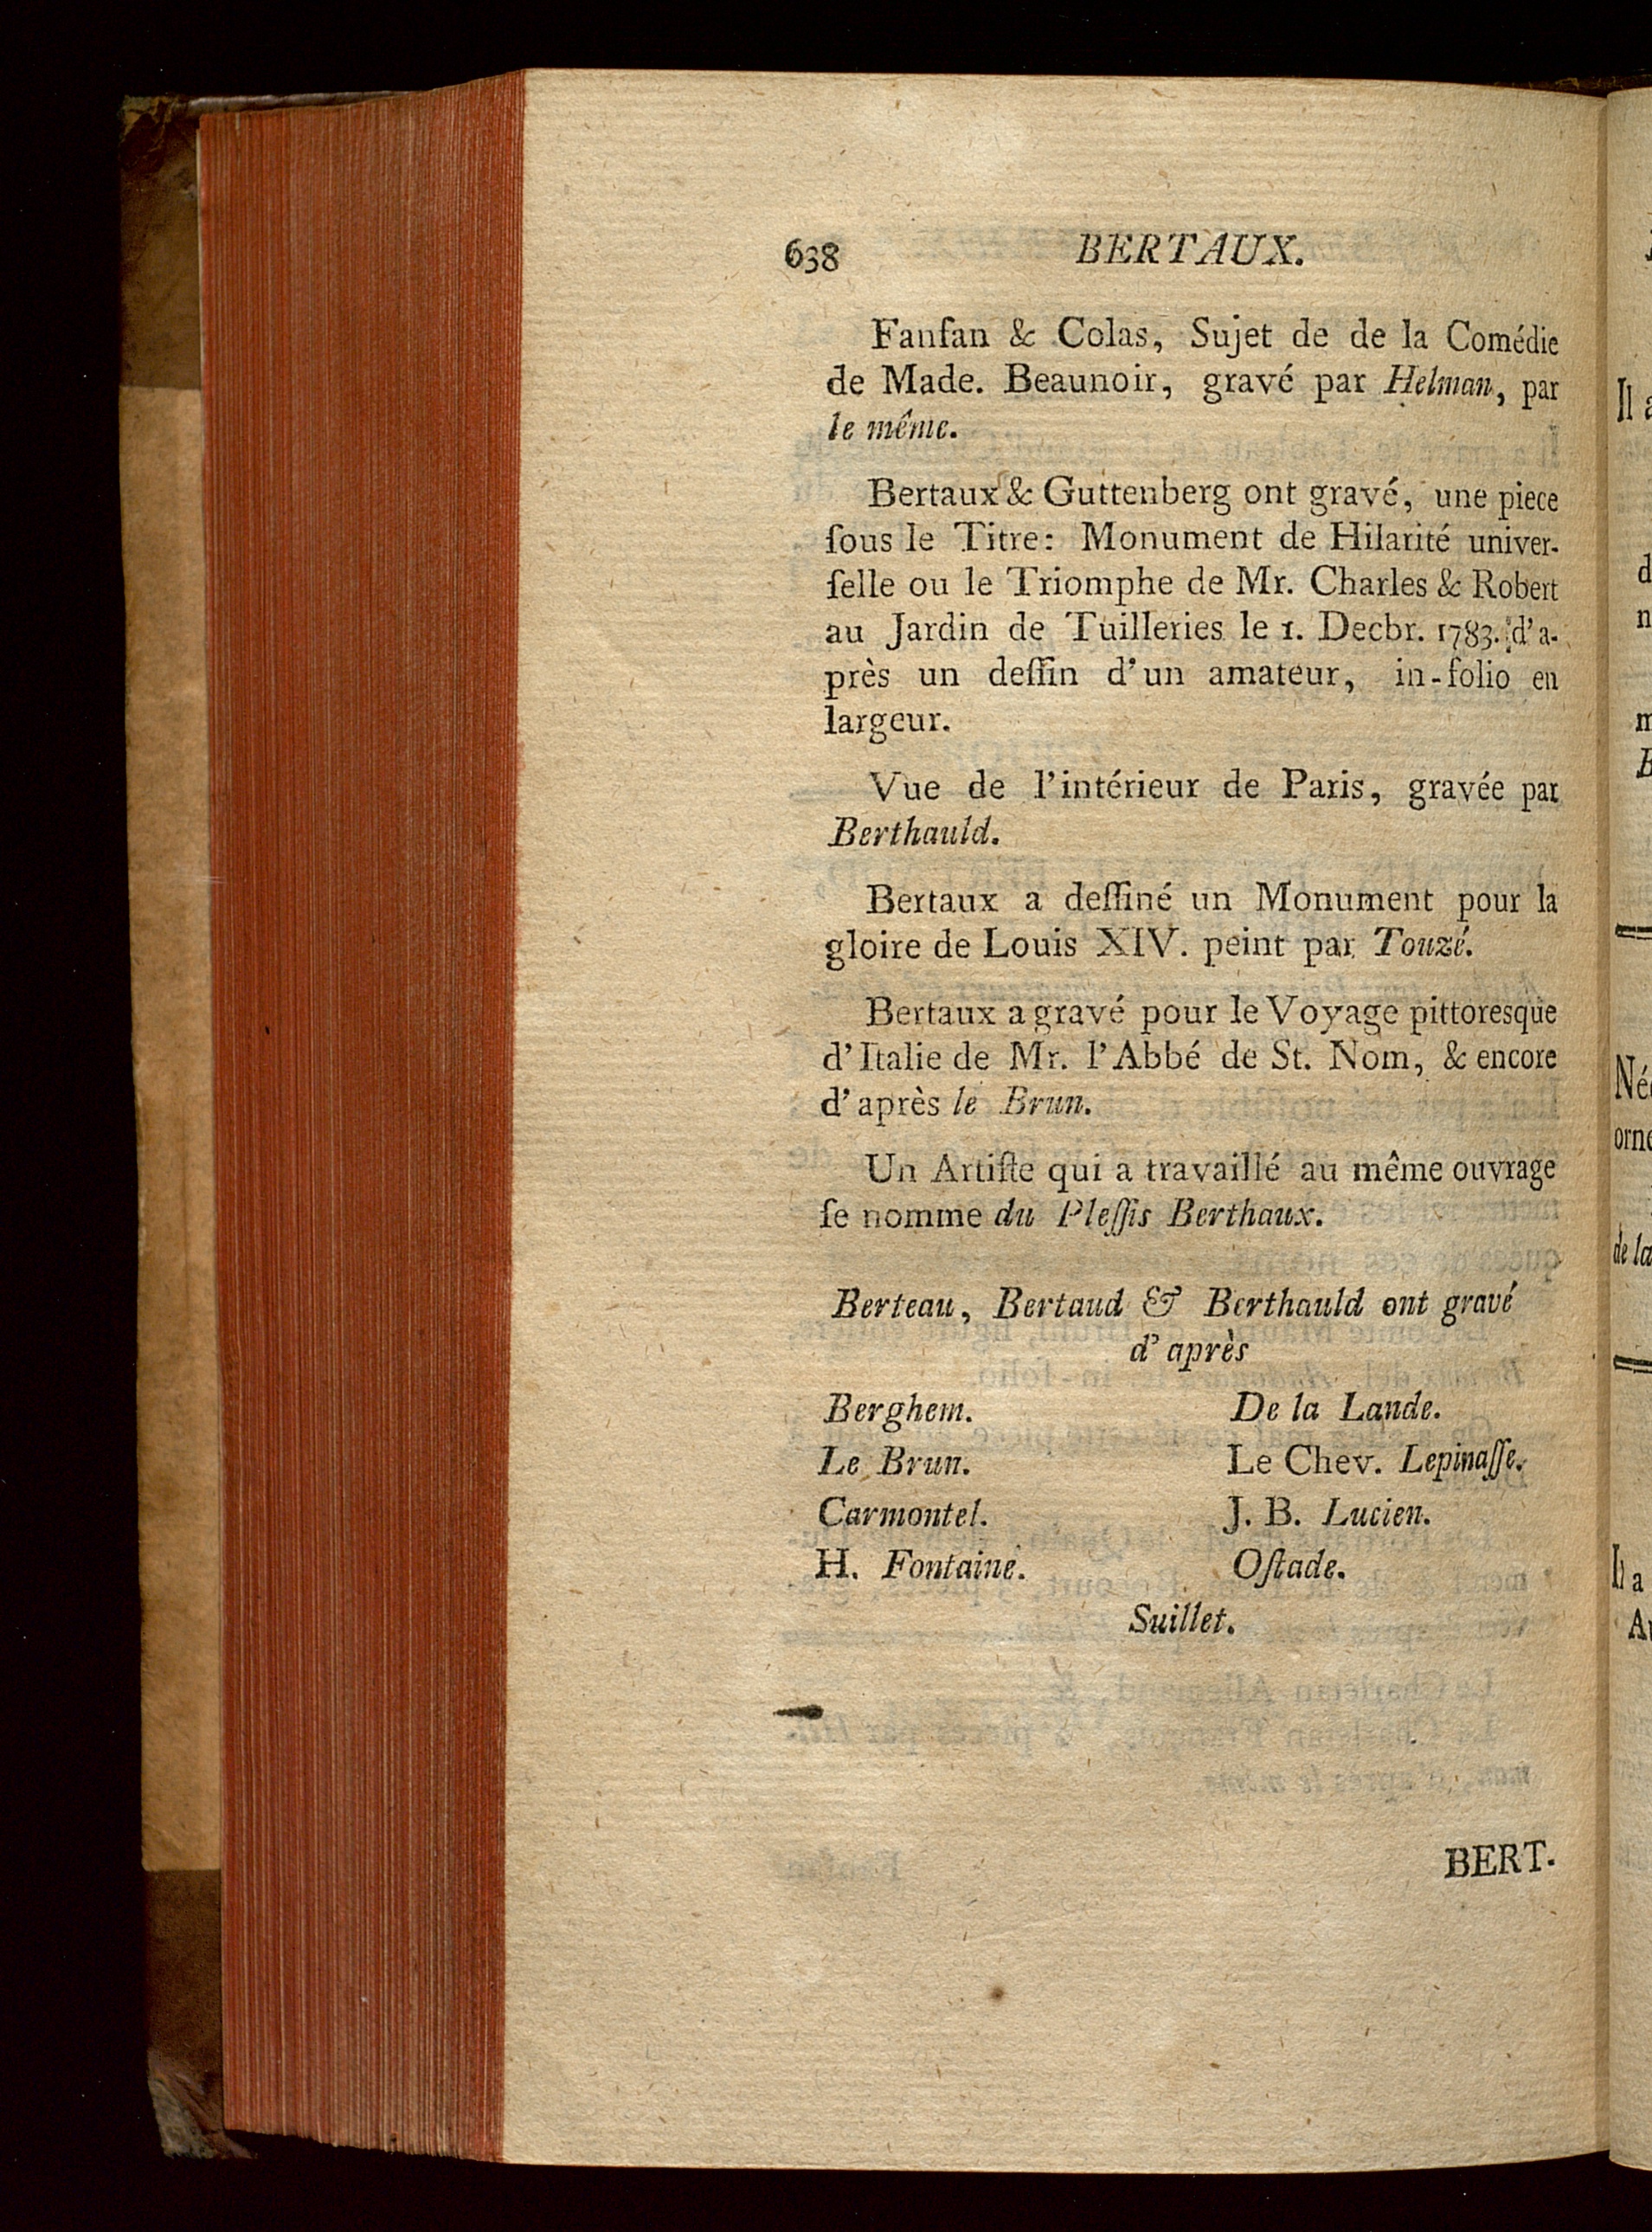 638 BERTAUX.
Fanfan & Colas, Sujet de de la Comédie
de Made. Beaunoir, gravé par Helman, par
le même.
Bertaux & Guttenberg ont gravé, une piece
ſous le Titre: Monument de Hilarité univer-
ſelle ou le Triomphe de Mr. Charles & Robert
au Jardin de Tuilleries le 1. Decbr. 1783. d'a-
près un deſſin d'un amateur, in-folio en
largeur.
Vue de l'intérieur de Paris, gravée par
Berthauld.
Bertaux a deſſiné un Monument pour la
gloire de Louis XIV. peint par Touzé.
Bertaux a gravé pour le Voyage pittoresque
d'Italie de Mr. l'Abbé de St. Nom, & encore
d'après le Brun.
Un Artiſte qui a travaillé au même ouvrage
ſe nomme du Pleſſis Berthaux.
Berteau, Bertaud & Berthauld ont gravé
d'après
Berghem. De la Lande.
Le Brun. Le Chev. Lepinaſſe.
Carmontel. J. B. Lucien.
H. Fontaine. Oſtade.
Suillet.
BERT.